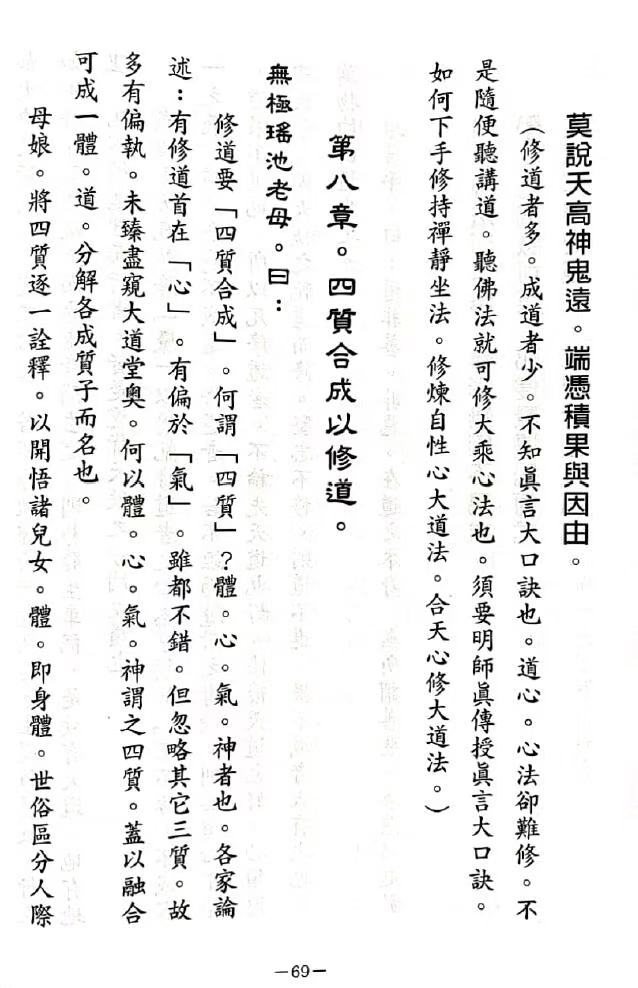 莫說天高神鬼遠。端憑積果與因由。
（修道者多。成道者少。不知眞言大口訣也。道心。心法卻難修。不
是隨便聽講道。聽佛法就可修大乘心法也。須要明師眞傳授眞言大口訣。
如何下手修持禪靜坐法。修煉自性心大道法。合天心修大道法。）
第八章。四質合成以修道。
無極瑤池老母。曰：
修道要「四質合成」。何謂「四質」？體。心。氣。神者也。各家論
述：有修道首在「心」。有偏於「氣」。雖都不錯。但忽略其它三質。故
多有偏執。未臻盡窺大道堂奧。何以體。心。氣。神謂之四質。蓋以融合
可成一體。道。分解各成質子而名也。
母娘。將四質逐一詮釋。以開悟諸兒女。體。即身體。世俗區分人際
－69－